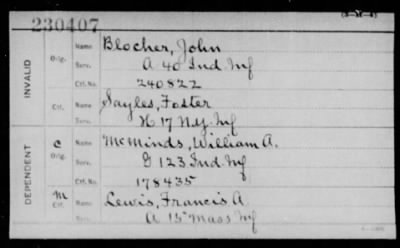 230407
(3-M-4)
INVALID
Orig. Name Blocher, John
Serv. A 40 Ind Inf
Ctf. No. 240822
Ctf. Name Sayles, Foster
Serv. H 17 N.Y. Inf
DEPENDENT
C Orig. Name McMinds, William A.
Serv. G 123 Ind Inf
Ctf. No. 178435
M Ctf. Name Lewis, Francis A.
Serv. A 15" Mass Inf